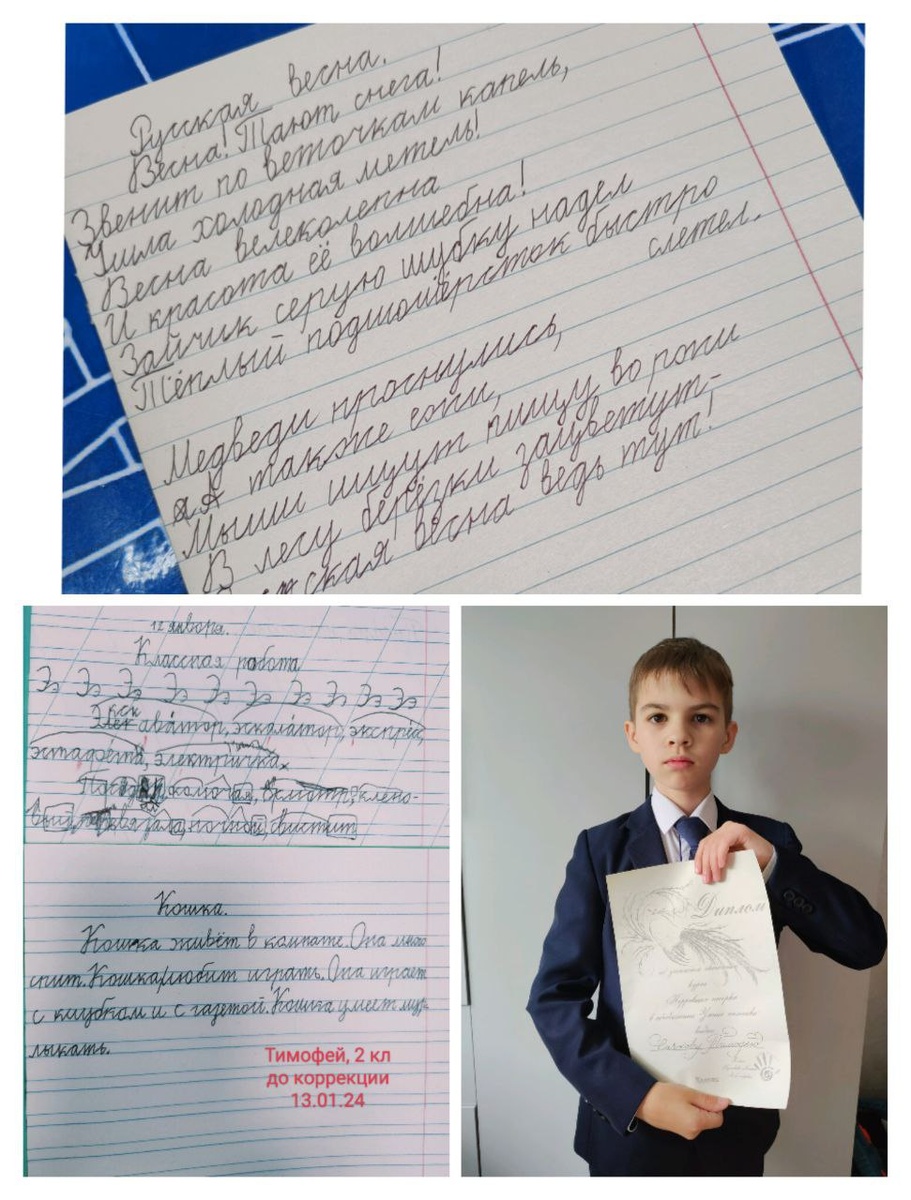 Русская весна.
Весна! Тают снега!
Звенит по веточкам капель,
Ушла холодная метель!
Весна велеколепна
И красота её волшебна!
Зайчик серую шубку надел
Тёплый подшошёрсток быстро
слетел.
Медведи проснулись,
А также сони,
Мыши ищут пищу во
В лесу берёзки зацветут-
весна ведь тут!
12 января.
Классная работа
Ээ Ээ Ээ Ээ Ээ Ээ Ээ Ээ Ээ
аватор, эскалатор, экспрес,
эстафета, электричка.
клено-
ночной, свистит
Кошка.
Кошка живёт в комнате. Она много
спит. Кошка любит играть. Она играет
с клубком и с газетой. Кошка умеет мур-
лыкать.
Тимофей, 2 кл
до коррекции
13.01.24
Диплом
курса